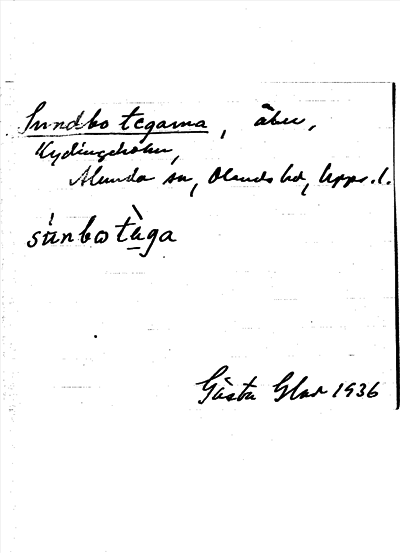 Sundbo tegarna, åker,
Kydingeholm,
Alunda sn, Olands hd, Upps.l.
súnbotὰ̱ga
Gösta Glad 1936